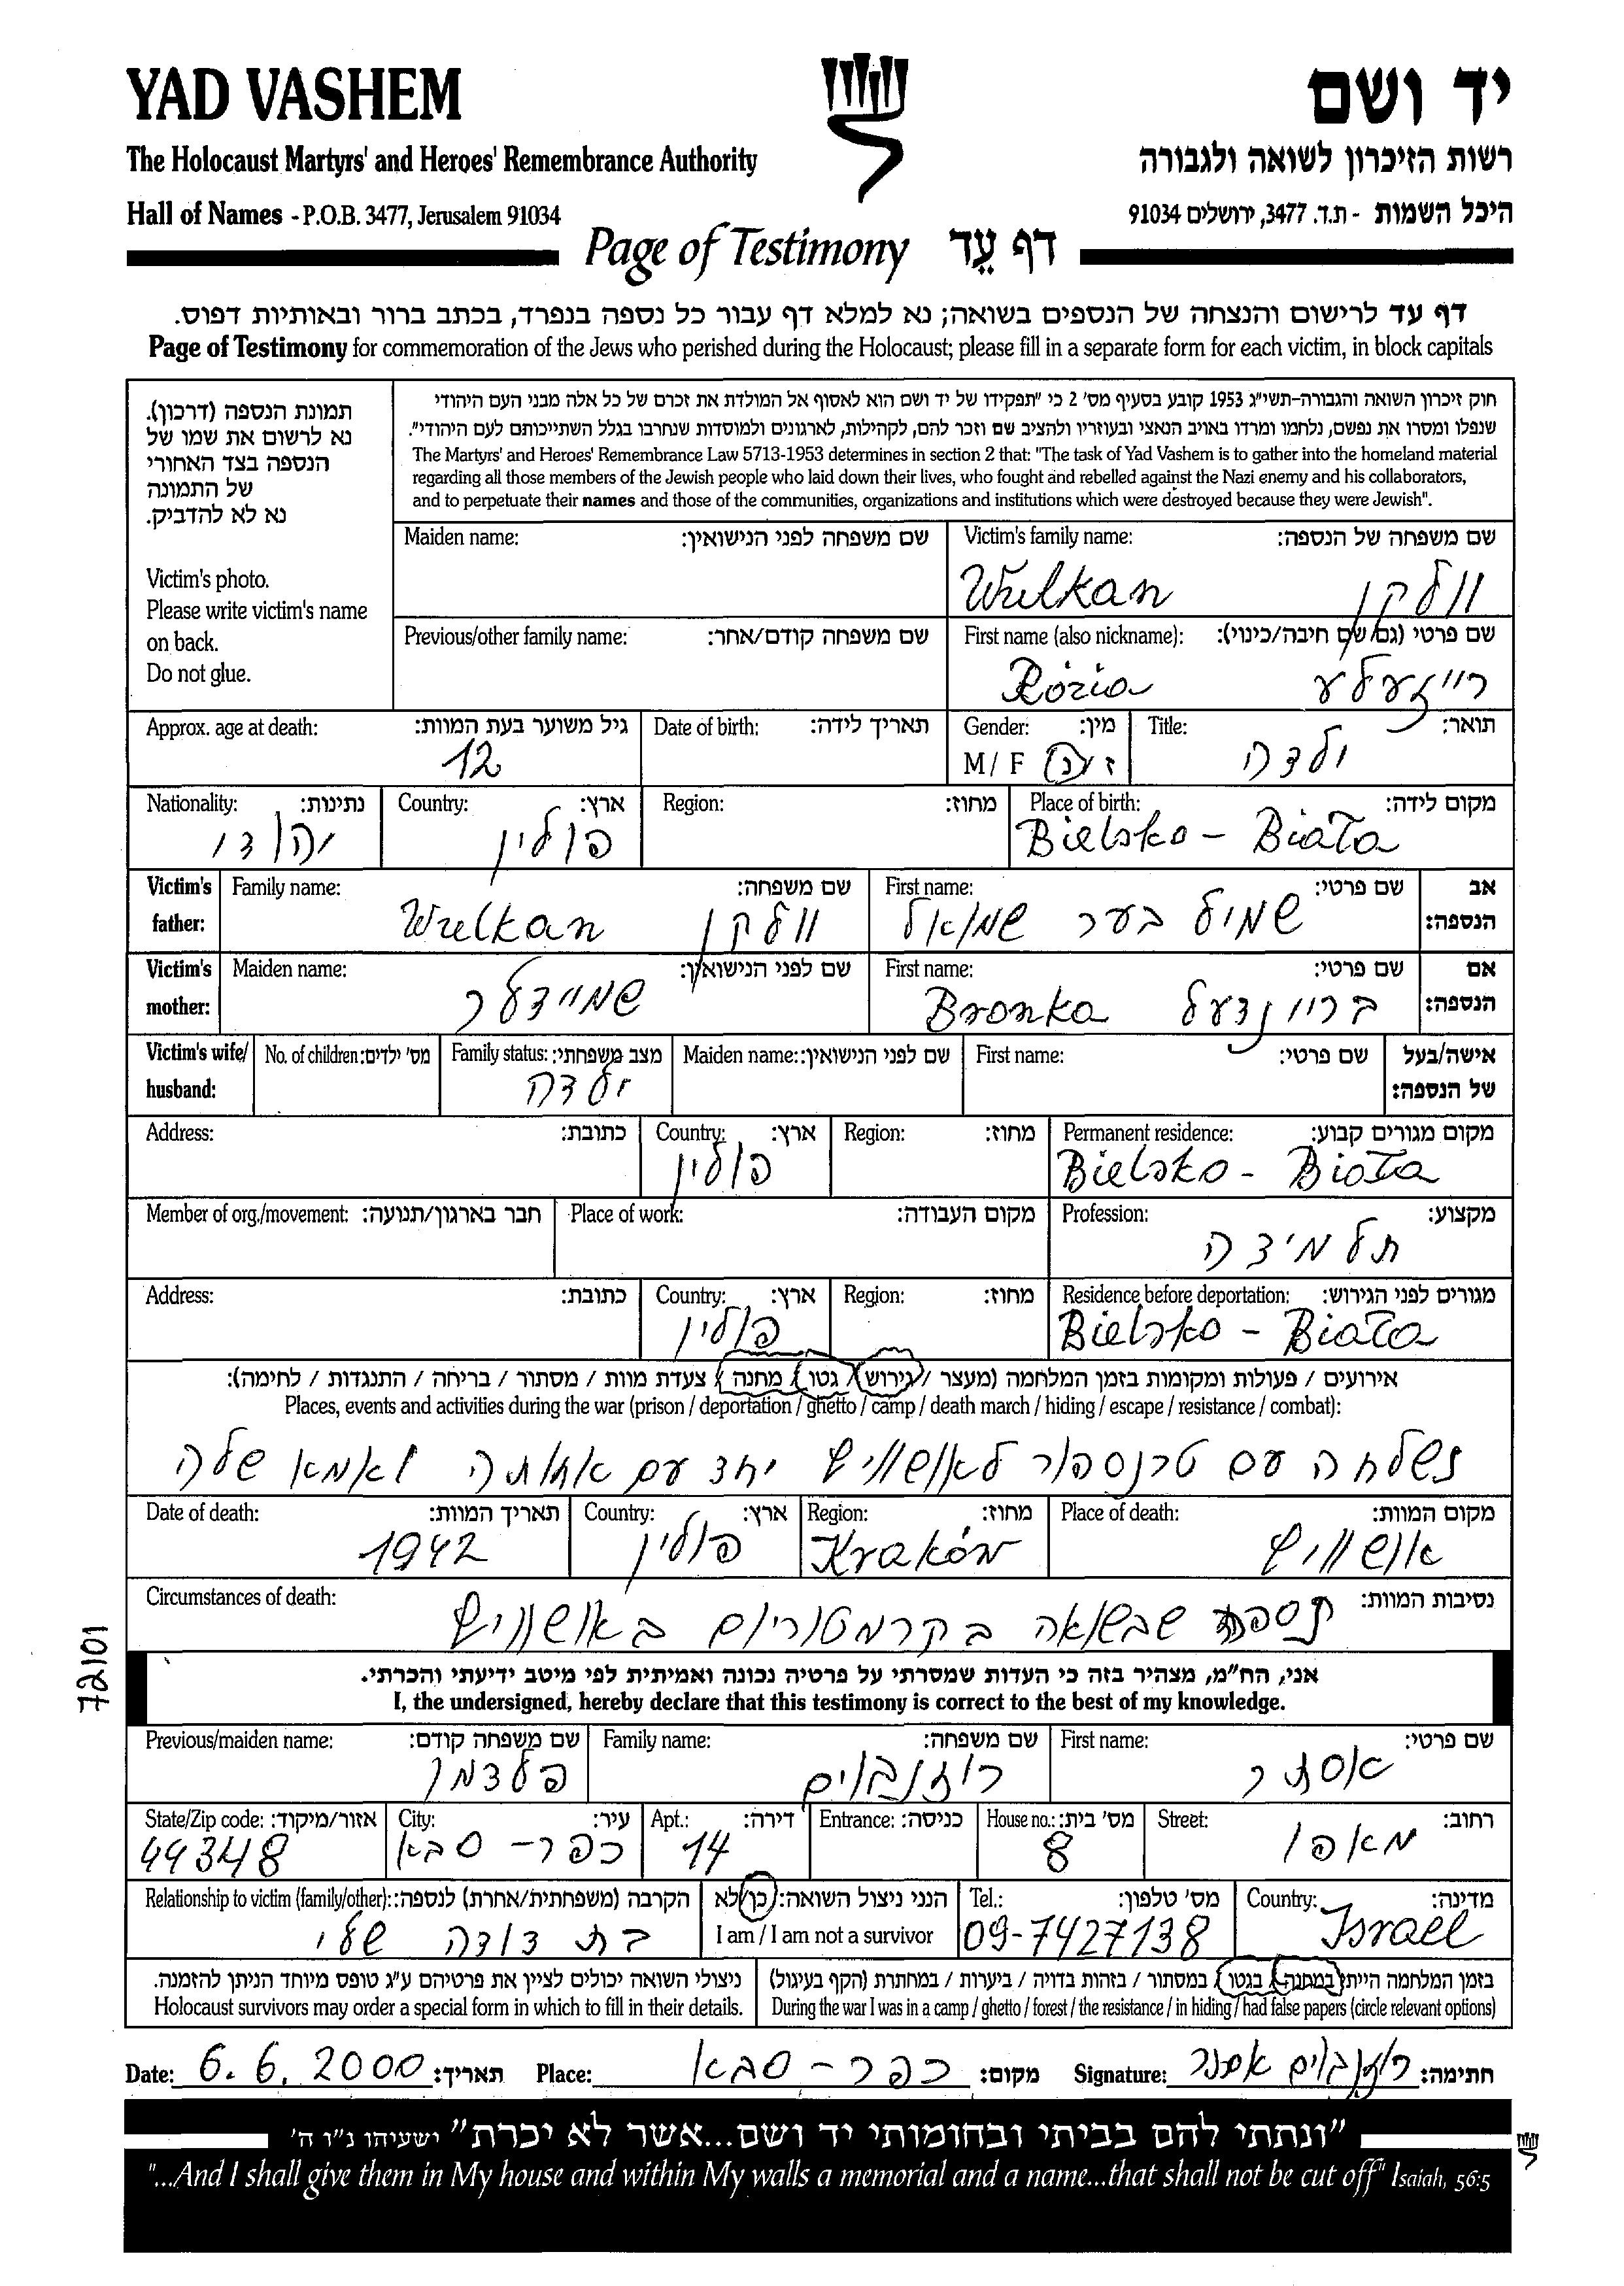 YAD VASHEM
יד ושם
The Holocaust Martyrs' and Heroes' Remembrance Authority
רשות הזיכרון לשואה ולגבורה
Hall of Names - P.O.B. 3477, Jerusalem 91034
היכל השמות - ת.ד. 3477, ירושלים 91034
Page of Testimony דף עֵד
דף עד לרישום והנצחה של הנספים בשואה; נא למלא דף עבור כל נספה בנפרד, בכתב ברור ובאותיות דפוס.
Page of Testimony for commemoration of the Jews who perished during the Holocaust; please fill in a separate form for each victim, in block capitals
תמונת הנספה (דרכון).
נא לרשום את שמו של
הנספה בצד האחורי
של התמונה
נא לא להדביק.
Victim's photo.
Please write victim's name
on back.
Do not glue.
חוק זיכרון השואה והגבורה-תשי"ג 1953 קובע בסעיף מס' 2 כי "תפקידו של יד ושם הוא לאסוף אל המולדת את זכרם של כל אלה מבני העם היהודי
שנפלו ומסרו את נפשם, נלחמו ומרדו באויב הנאצי ובעוזריו ולהציב שם וזכר להם, לקהילות, לארגונים ולמוסדות שנחרבו בגלל השתייכותם לעם היהודי".
The Martyrs' and Heroes' Remembrance Law 5713-1953 determines in section 2 that: "The task of Yad Vashem is to gather into the homeland material
regarding all those members of the Jewish people who laid down their lives, who fought and rebelled against the Nazi enemy and his collaborators,
and to perpetuate their names and those of the communities, organizations and institutions which were destroyed because they were Jewish".
Maiden name: שם משפחה לפני הנישואין:
Victim's family name: שם משפחה של הנספה:
Wulkan וולקן
Previous/other family name: שם משפחה קודם/אחר:
First name (also nickname): שם פרטי (גם שם חיבה/כינוי):
Rózia רייזעלע
Approx. age at death: גיל משוער בעת המוות:
12
Date of birth: תאריך לידה:
Gender: מין:
M / F ז / נ
Title: תואר:
ילדה
Nationality: נתינות:
יהודי
Country: ארץ:
פולין
Region: מחוז:
Place of birth: מקום לידה:
Bielsko - Biała
Victim's father: אב הנספה:
Family name: שם משפחה:
Wulkan וולקן
First name: שם פרטי:
שמיל בער שמואל
Victim's mother: אם הנספה:
Maiden name: שם לפני הנישואין:
שמיידלער
First name: שם פרטי:
Bronka בריינדעל
Victim's wife/ husband: אישה/בעל של הנספה:
No. of children: מס' ילדים:
Family status: מצב משפחתי:
ילדה
Maiden name: שם לפני הנישואין:
First name: שם פרטי:
Address: כתובת:
Country: ארץ:
פולין
Region: מחוז:
Permanent residence: מקום מגורים קבוע:
Bielsko - Biała
Member of org./movement: חבר בארגון/תנועה:
Place of work: מקום העבודה:
Profession: מקצוע:
תלמידה
Address: כתובת:
Country: ארץ:
פולין
Region: מחוז:
Residence before deportation: מגורים לפני הגירוש:
Bielsko - Biała
אירועים / פעולות ומקומות בזמן המלחמה (מעצר / גירוש / גטו / מחנה / צעדת מוות / מסתור / בריחה / התנגדות / לחימה):
Places, events and activities during the war (prison / deportation / ghetto / camp / death march / hiding / escape / resistance / combat):
נשלחה עם טרנספור לאושוויץ יחד עם אחותה ואמא שלה
Date of death: תאריך המוות:
1942
Country: ארץ:
פולין
Region: מחוז:
Kraków
Place of death: מקום המוות:
אושוויץ
Circumstances of death: נסיבות המוות:
נספתה שבשואה בקרמטוריום באושוויץ
72101
אני, הח"מ, מצהיר בזה כי העדות שמסרתי על פרטיה נכונה ואמיתית לפי מיטב ידיעתי והכרתי.
I, the undersigned, hereby declare that this testimony is correct to the best of my knowledge.
Previous/maiden name: שם משפחה קודם:
פעלדמן
Family name: שם משפחה:
רוזנבוים
First name: שם פרטי:
אסתר
State/Zip code: אזור/מיקוד:
44348
City: עיר:
כפר-סבא
Apt.: דירה:
14
Entrance: כניסה:
House no.: מס' בית:
8
Street: רחוב:
מאפו
Relationship to victim (family/other): הקרבה (משפחתית/אחרת) לנספה:
בת דודה שלי
הנני ניצול השואה: כן/לא
I am / I am not a survivor
Tel.: מס' טלפון:
09-7427138
Country: מדינה:
Israel
ניצולי השואה יכולים לציין את פרטיהם ע"ג טופס מיוחד הניתן להזמנה.
Holocaust survivors may order a special form in which to fill in their details.
בזמן המלחמה הייתי במחנה / בגטו / במסתור / בזהות בדויה / ביערות / במחתרת (הקף בעיגול)
During the war I was in a camp / ghetto / forest / the resistance / in hiding / had false papers (circle relevant options)
Date: 6.6.2000 תאריך: Place: כפר-סבא מקום: Signature: רוזנבוים אסתר חתימה:
"ונתתי להם בביתי ובחומותי יד ושם...אשר לא יכרת" ישעיהו נ"ו ה'
"...And I shall give them in My house and within My walls a memorial and a name...that shall not be cut off" Isaiah, 56:5